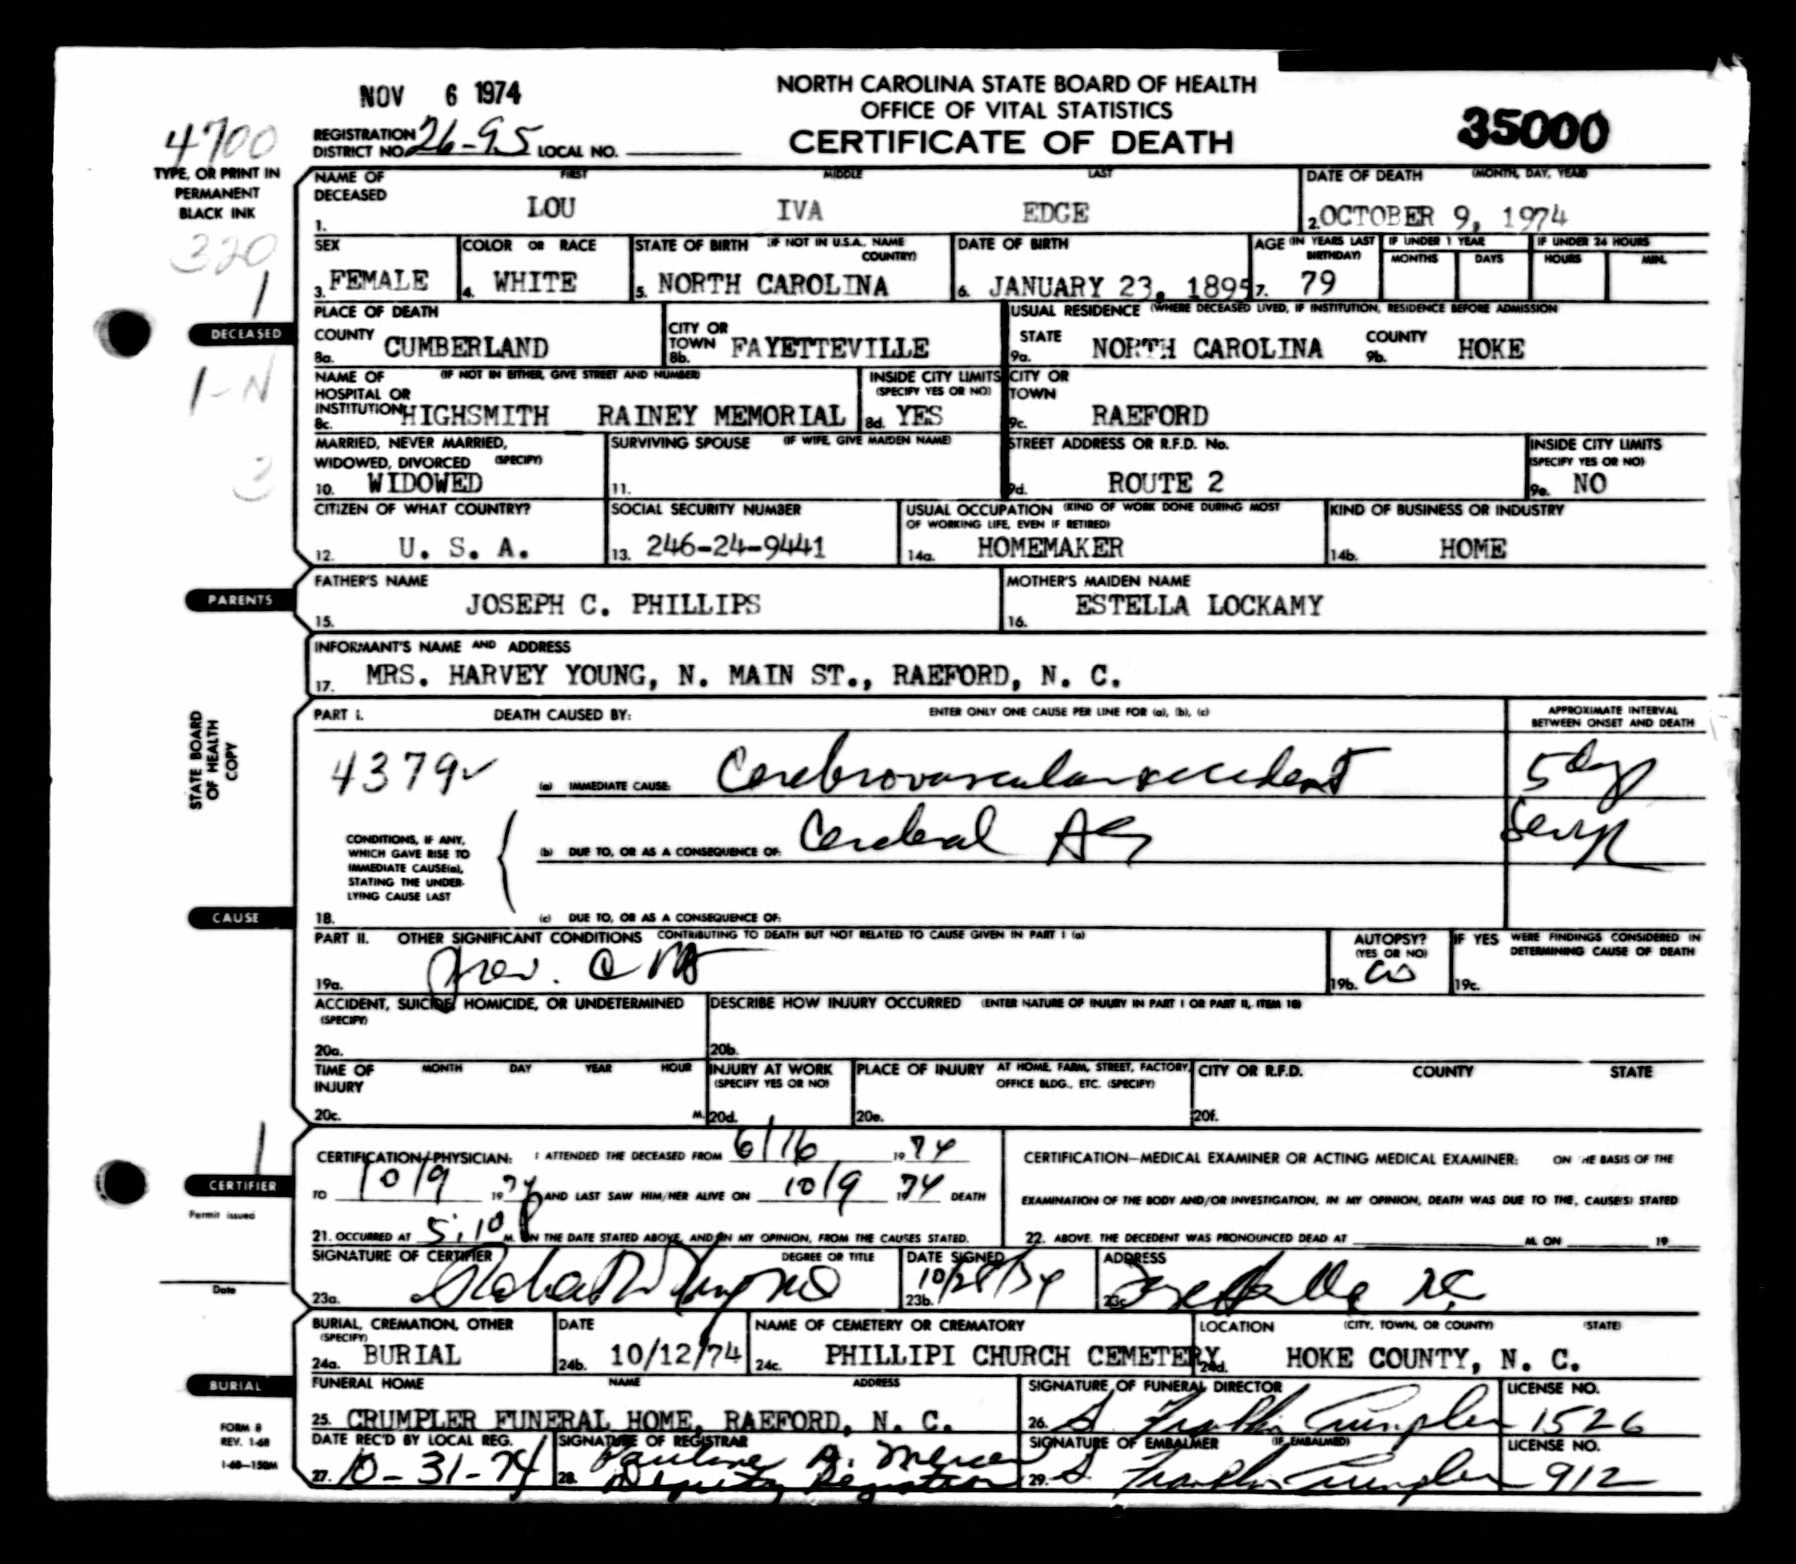 NOV 6 1974
NORTH CAROLINA STATE BOARD OF HEALTH
OFFICE OF VITAL STATISTICS
CERTIFICATE OF DEATH
35000
4700
REGISTRATION DISTRICT NO. 26-95 LOCAL NO.
TYPE, OR PRINT IN
PERMANENT
BLACK INK
320
1
DECEASED
1-N
3
NAME OF DECEASED FIRST MIDDLE LAST
1. LOU IVA EDGE
DATE OF DEATH (MONTH, DAY, YEAR)
2. OCTOBER 9, 1974
SEX
3. FEMALE
COLOR OR RACE
4. WHITE
STATE OF BIRTH (IF NOT IN U.S.A., NAME COUNTRY)
5. NORTH CAROLINA
DATE OF BIRTH
6. JANUARY 23, 1895
AGE (IN YEARS LAST BIRTHDAY)
7. 79
IF UNDER 1 YEAR
MONTHS DAYS
IF UNDER 24 HOURS
HOURS MIN.
PLACE OF DEATH
COUNTY
8a. CUMBERLAND
CITY OR TOWN
8b. FAYETTEVILLE
USUAL RESIDENCE (WHERE DECEASED LIVED, IF INSTITUTION, RESIDENCE BEFORE ADMISSION
STATE
9a. NORTH CAROLINA
COUNTY
9b. HOKE
NAME OF HOSPITAL OR INSTITUTION (IF NOT IN EITHER, GIVE STREET AND NUMBER)
8c. HIGHSMITH RAINEY MEMORIAL
INSIDE CITY LIMITS (SPECIFY YES OR NO)
8d. YES
CITY OR TOWN
9c. RAEFORD
MARRIED, NEVER MARRIED, WIDOWED, DIVORCED (SPECIFY)
10. WIDOWED
SURVIVING SPOUSE (IF WIFE, GIVE MAIDEN NAME)
11.
STREET ADDRESS OR R.F.D. No.
9d. ROUTE 2
INSIDE CITY LIMITS (SPECIFY YES OR NO)
9e. NO
CITIZEN OF WHAT COUNTRY?
12. U. S. A.
SOCIAL SECURITY NUMBER
13. 246-24-9441
USUAL OCCUPATION (KIND OF WORK DONE DURING MOST OF WORKING LIFE, EVEN IF RETIRED)
14a. HOMEMAKER
KIND OF BUSINESS OR INDUSTRY
14b. HOME
PARENTS
FATHER'S NAME
15. JOSEPH C. PHILLIPS
MOTHER'S MAIDEN NAME
16. ESTELLA LOCKAMY
INFORMANT'S NAME AND ADDRESS
17. MRS. HARVEY YOUNG, N. MAIN ST., RAEFORD, N. C.
STATE BOARD
OF HEALTH
COPY
PART I. DEATH CAUSED BY: ENTER ONLY ONE CAUSE PER LINE FOR (a), (b), (c)
APPROXIMATE INTERVAL BETWEEN ONSET AND DEATH
4379
(a) IMMEDIATE CAUSE: Cerebrovascular accident 5 days
CONDITIONS, IF ANY,
WHICH GAVE RISE TO
IMMEDIATE CAUSE(a),
STATING THE UNDER-
LYING CAUSE LAST
(b) DUE TO, OR AS A CONSEQUENCE OF: Cerebral AS
CAUSE
18. (c) DUE TO, OR AS A CONSEQUENCE OF:
PART II. OTHER SIGNIFICANT CONDITIONS CONTRIBUTING TO DEATH BUT NOT RELATED TO CAUSE GIVEN IN PART I (a)
19a. Prev.
AUTOPSY? (YES OR NO)
19b.
IF YES WERE FINDINGS CONSIDERED IN DETERMINING CAUSE OF DEATH
19c.
ACCIDENT, SUICIDE, HOMICIDE, OR UNDETERMINED (SPECIFY)
20a.
DESCRIBE HOW INJURY OCCURRED (ENTER NATURE OF INJURY IN PART I OR PART II, ITEM 18)
20b.
TIME OF INJURY MONTH DAY YEAR HOUR
20c. M.
INJURY AT WORK (SPECIFY YES OR NO)
20d.
PLACE OF INJURY AT HOME, FARM, STREET, FACTORY, OFFICE BLDG., ETC. (SPECIFY)
20e.
CITY OR R.F.D. COUNTY STATE
20f.
1
CERTIFIER
Permit issued
Date
CERTIFICATION-PHYSICIAN: I ATTENDED THE DECEASED FROM 6/16 1974
TO 10/9 1974 AND LAST SAW HIM/HER ALIVE ON 10/9 1974 DEATH
21. OCCURRED AT 5:10 P M. ON THE DATE STATED ABOVE, AND IN MY OPINION, FROM THE CAUSES STATED.
CERTIFICATION—MEDICAL EXAMINER OR ACTING MEDICAL EXAMINER: ON THE BASIS OF THE
EXAMINATION OF THE BODY AND/OR INVESTIGATION, IN MY OPINION, DEATH WAS DUE TO THE, CAUSE(S) STATED
22. ABOVE. THE DECEDENT WAS PRONOUNCED DEAD AT M. ON 19
SIGNATURE OF CERTIFIER DEGREE OR TITLE
23a. MD
DATE SIGNED
23b. 10/28/74
ADDRESS
23c. Fayetteville NC
BURIAL, CREMATION, OTHER (SPECIFY)
24a. BURIAL
DATE
24b. 10/12/74
NAME OF CEMETERY OR CREMATORY
24c. PHILLIPI CHURCH CEMETERY
LOCATION (CITY, TOWN, OR COUNTY) (STATE)
24d. HOKE COUNTY, N. C.
BURIAL
FUNERAL HOME NAME ADDRESS
25. CRUMPLER FUNERAL HOME, RAEFORD, N. C.
SIGNATURE OF FUNERAL DIRECTOR
26. S. Franklin Crumpler
LICENSE NO.
1526
FORM 8
REV. 1-68
1-68—150M
DATE REC'D BY LOCAL REG.
27. 10-31-74
SIGNATURE OF REGISTRAR
28. Pauline A. Mercer
Deputy Registrar
SIGNATURE OF EMBALMER (IF EMBALMED)
29. S. Franklin Crumpler
LICENSE NO.
912